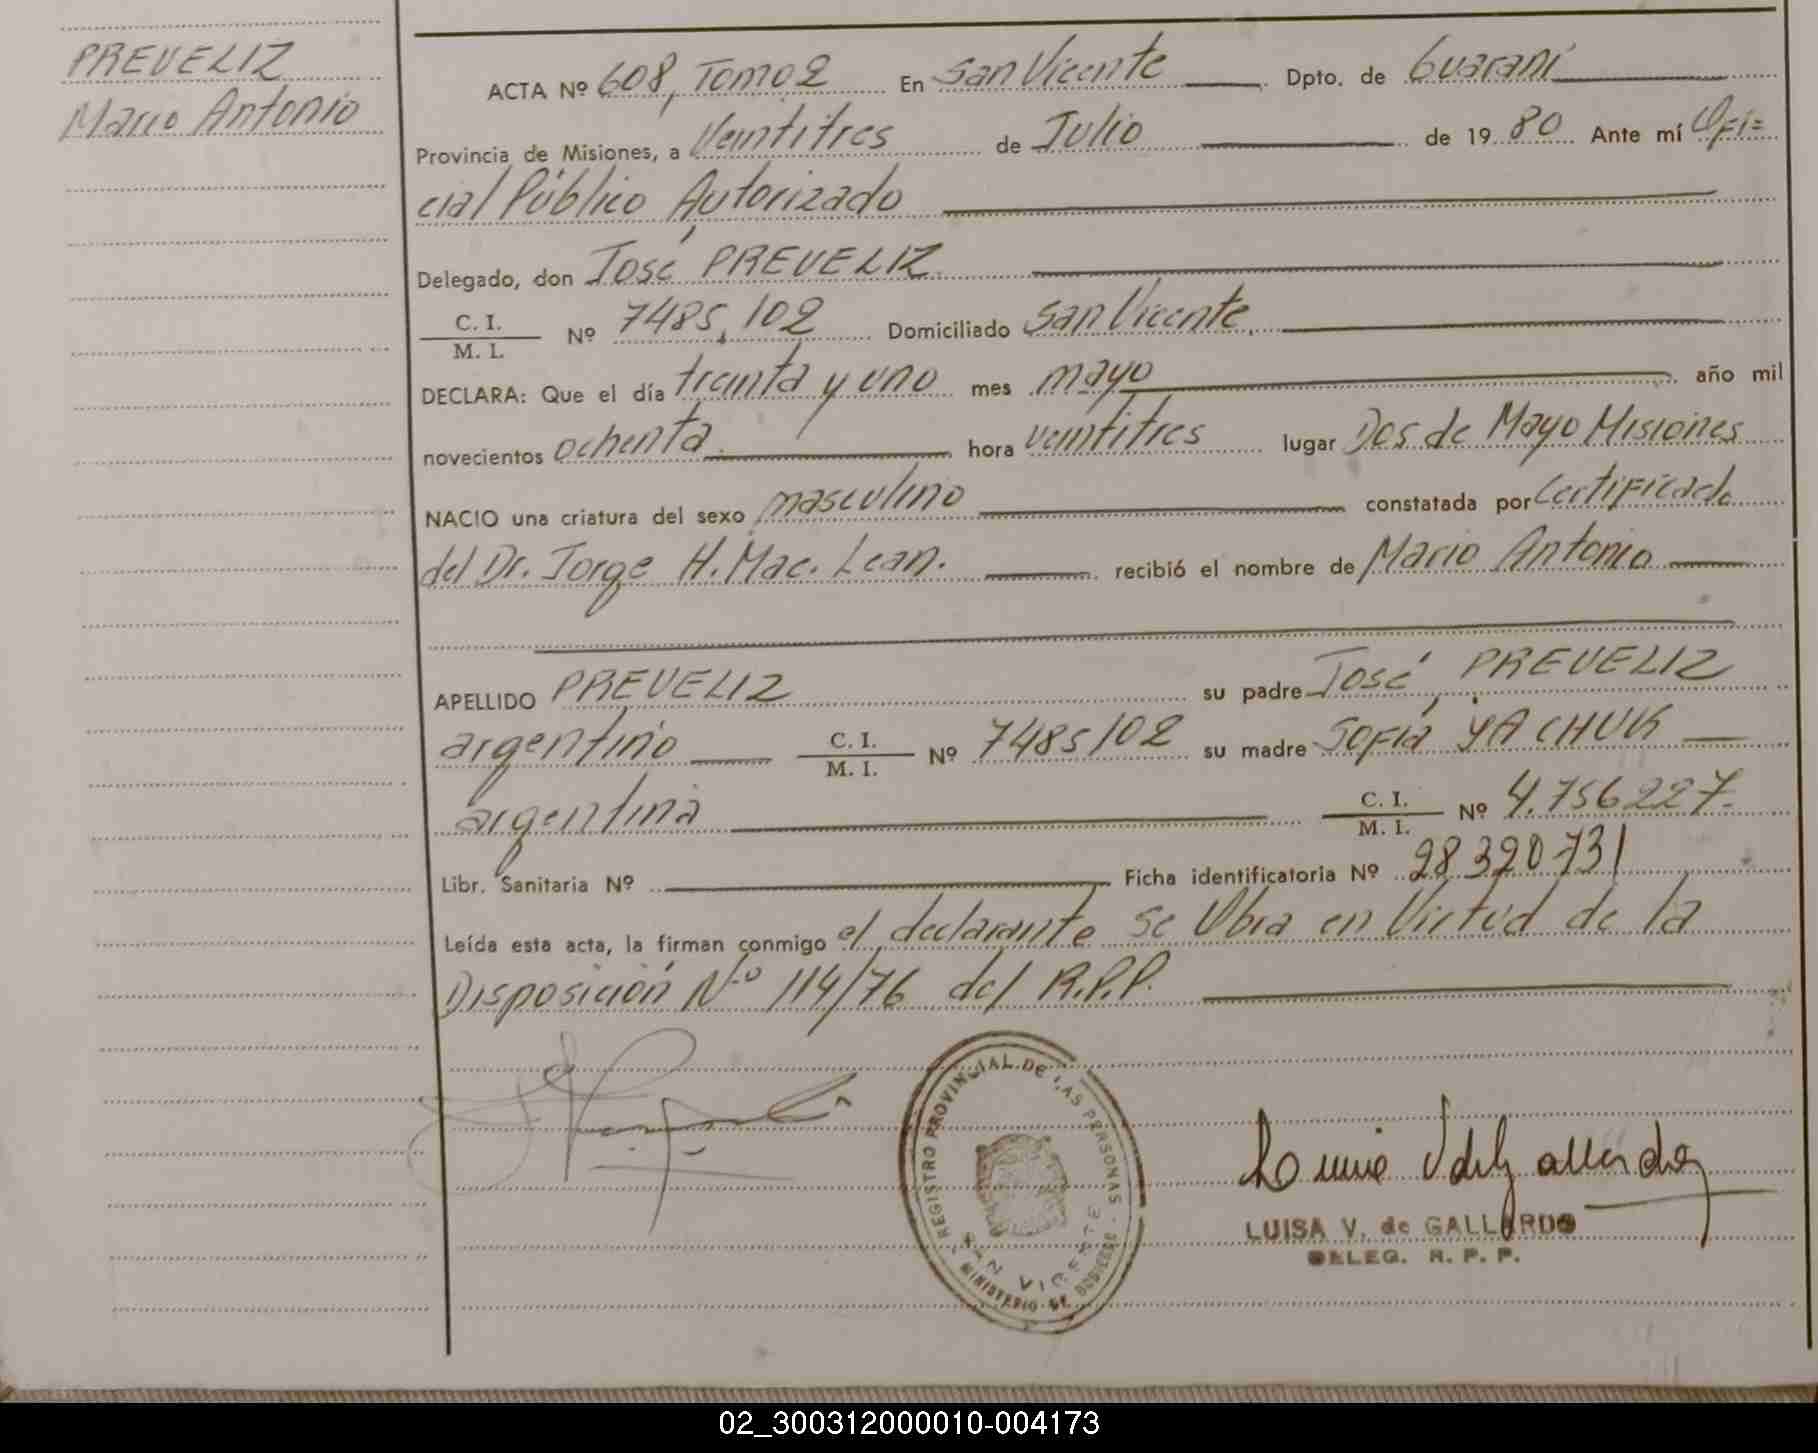 PREVELIZ
Mario Antonio
ACTA Nº 608, Tomo 2 En San Vicente Dpto. de Guaraní
Provincia de Misiones, a Veintitres de Julio de 19 80 Ante mí Ofi=
cial Público Autorizado
Delegado, don José PREVELIZ
C. I.
M. I. Nº 7485,102 Domiciliado San Vicente,
DECLARA: Que el día treinta y uno mes mayo año mil
novecientos ochenta hora veintitres lugar Dos de Mayo Misiones
NACIO una criatura del sexo masculino constatada por Certificado
del Dr. Jorge H. Mac. Lean. recibió el nombre de Mario Antonio
APELLIDO PREVELIZ su padre José PREVELIZ
argentino C. I.
M. I. Nº 7485102 su madre Sofía YACHUK
argentina C. I.
M. I. Nº 4.756227.
Libr. Sanitaria Nº Ficha identificatoria Nº 28.320.731
Leída esta acta, la firman conmigo el declarante se Obra en Virtud de la
Disposición Nº 114/76 del R.P.P.
REGISTRO PROVINCIAL DE LAS PERSONAS
SAN VICENTE
MINISTERIO DE GOBIERNO
LUISA V. de GALLARDO
DELEG. R. P. P.
02_300312000010-004173